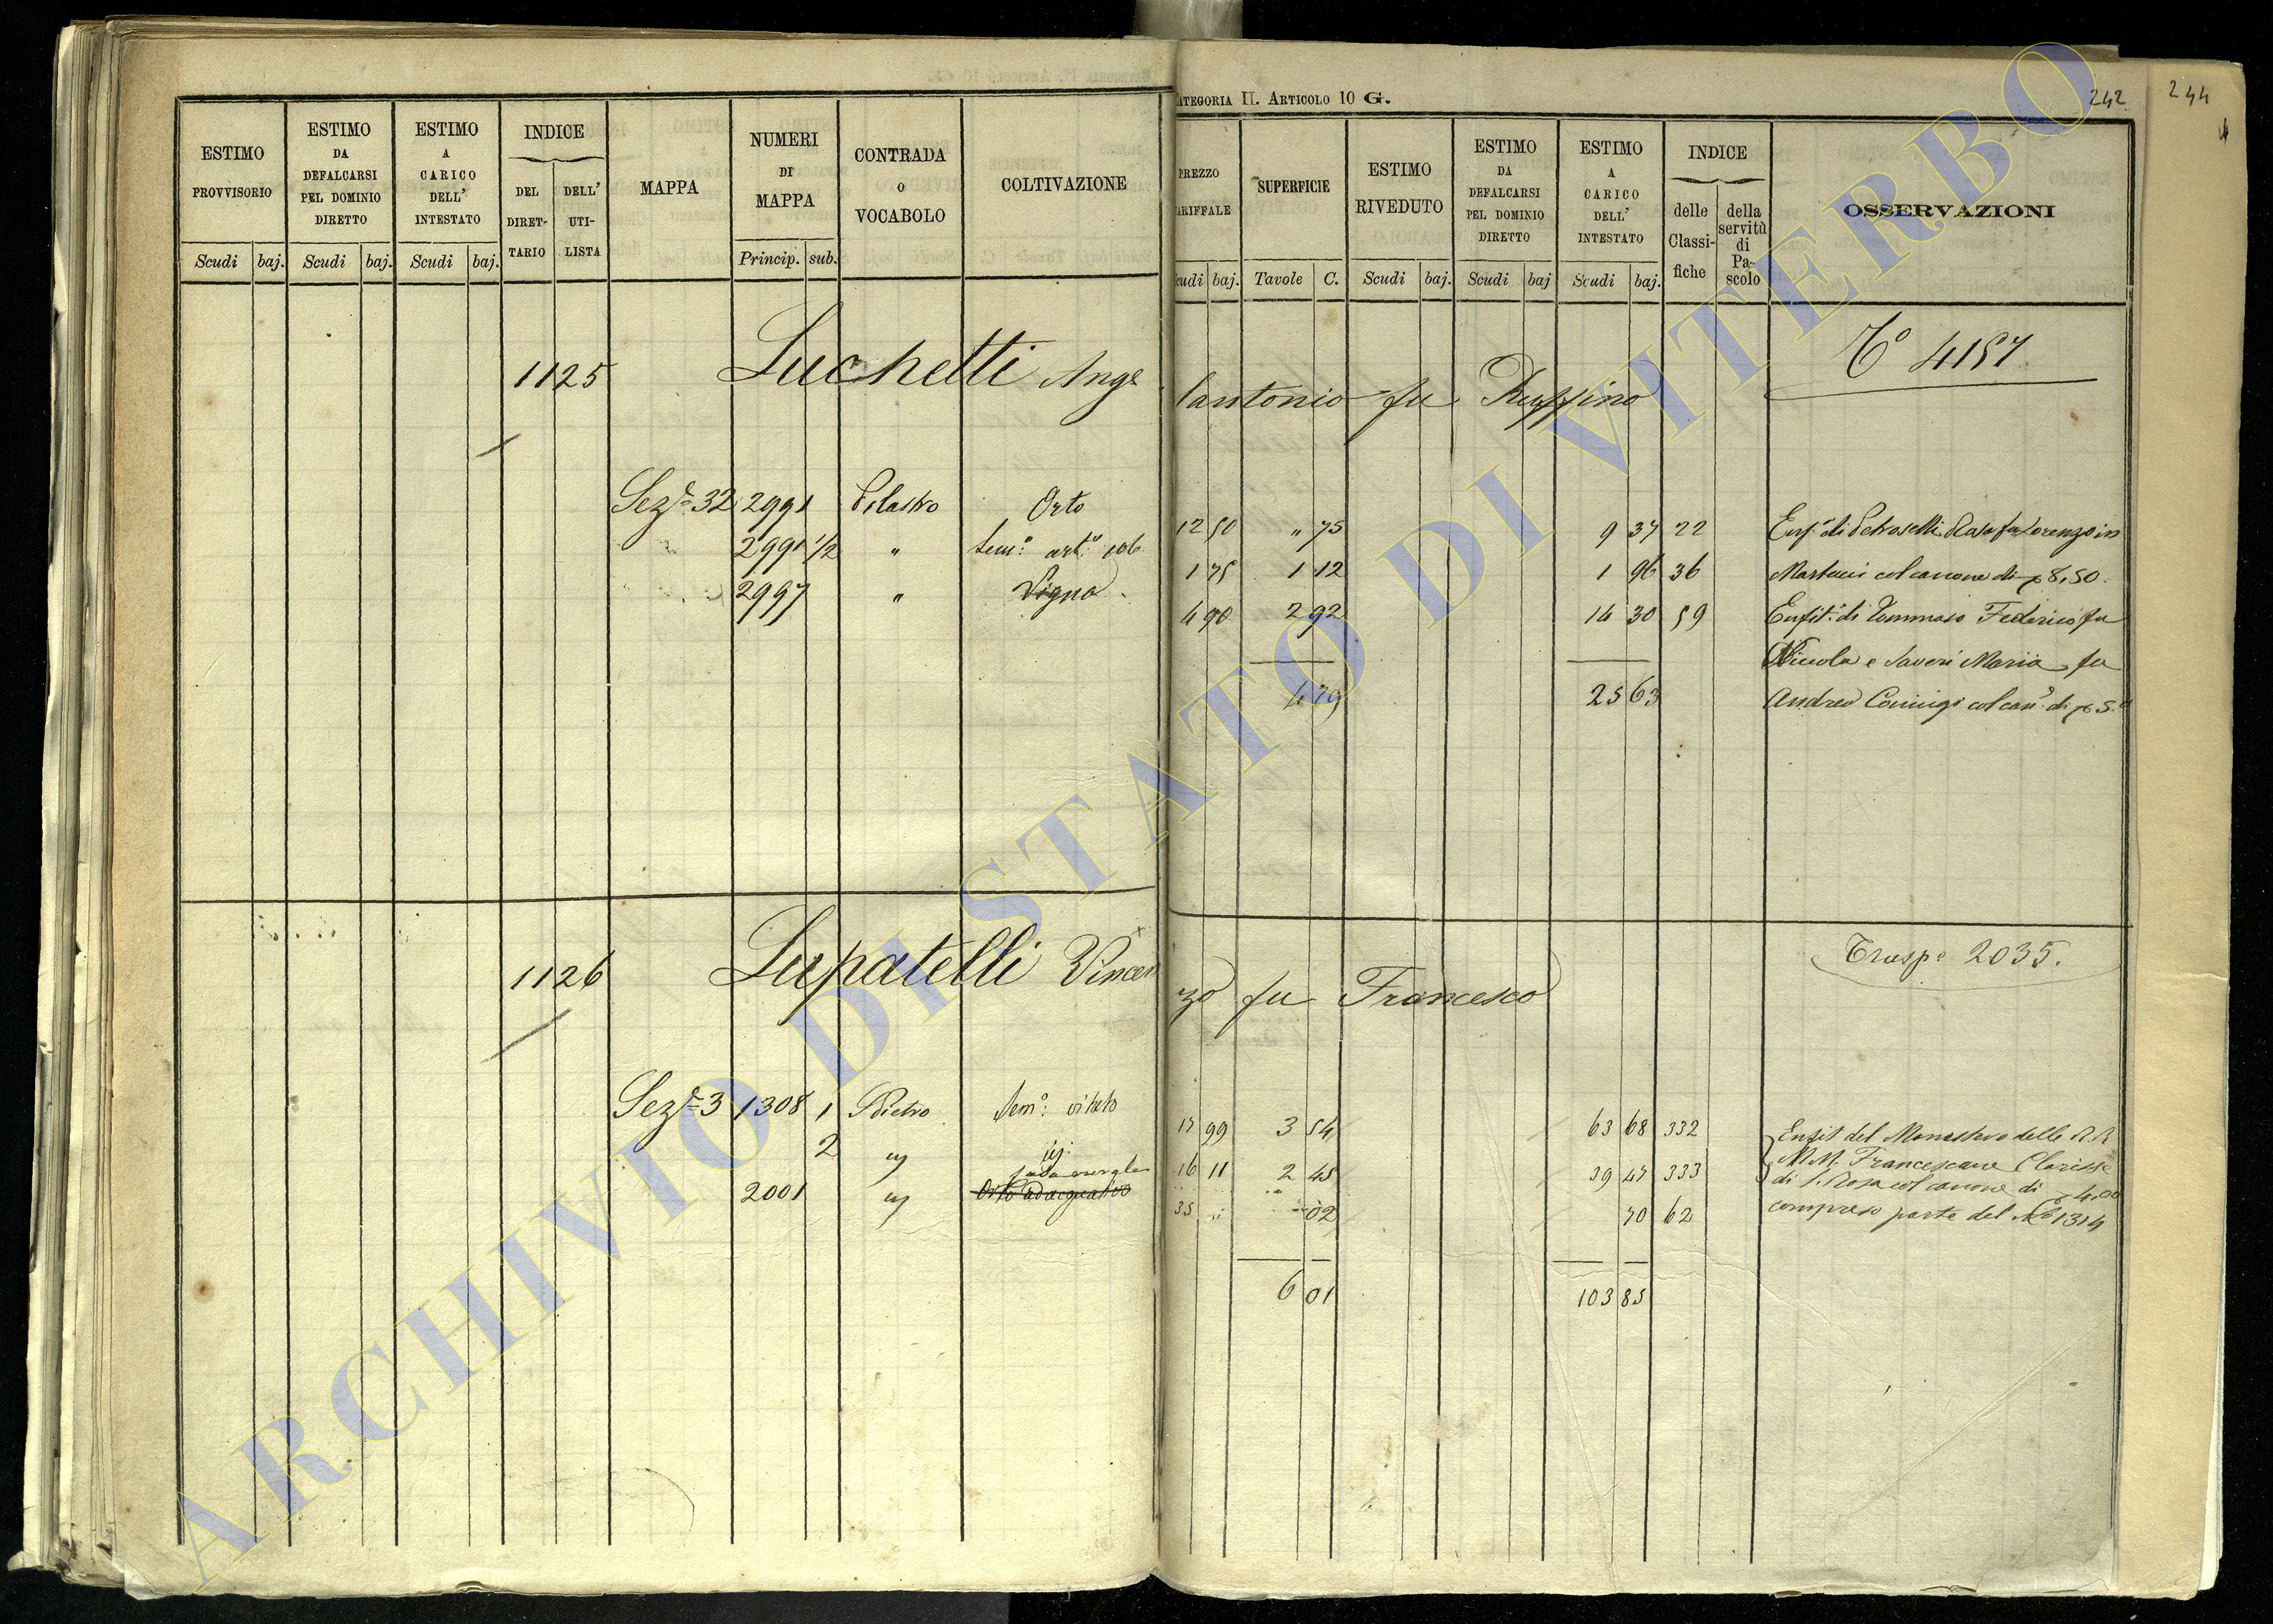 CATEGORIA II. ARTICOLO 10 G.
242
244
ESTIMO PROVVISORIO
ESTIMO DA DEFALCARSI PEL DOMINIO DIRETTO
ESTIMO A CARICO DELL' INTESTATO
INDICE
DEL DIRET-TARIO
DELL' UTI-LISTA
MAPPA
NUMERI DI MAPPA
CONTRADA O VOCABOLO
COLTIVAZIONE
PREZZO TARIFFALE
SUPERFICIE
ESTIMO RIVEDUTO
ESTIMO DA DEFALCARSI PEL DOMINIO DIRETTO
ESTIMO A CARICO DELL' INTESTATO
INDICE
delle Classi-fiche
della servitù di Pa-scolo
OSSERVAZIONI
Scudi baj. Scudi baj. Scudi baj. Princip. sub. Scudi baj. Tavole C. Scudi baj. Scudi baj Scudi baj.
1125 Luchetti Angelantonio fu Ruffino
Tº 4157
Sezᵉ 32 2991 Pilastro Orto 12 50 " 75 9 37 22
2991 1/2 " Semº artº 1 75 1 12 1 96 36
2997 " Vigna 4 90 2 92 14 30 59
4 79 25 63
Enfª di Petroselli Rosa fu Lorenzo in
Martucci col canone di 8,50.
Enfitª di Tommaso Federico fu
Niccola e Saveri Maria fu
Andrea Coniugi col canᵉ di 5
1126 Lupatelli Vincenzo fu Francesco
Traspº 2035.
Sezᵉ 3 1308 1 Pietro Semº vitato 17 99 3 54 63 68 332
2 " id. 16 11 2 45 39 47 333
2001 " Orto adacquativo 35 " 02 70 62
6 01 103 85
Enfit del Monastero delle R.R
M.M. Francescane Clarisse
di S. Rosa col canone di 4,00
compreso parte del Nº 1314
ARCHIVIO DI STATO DI VITERBO